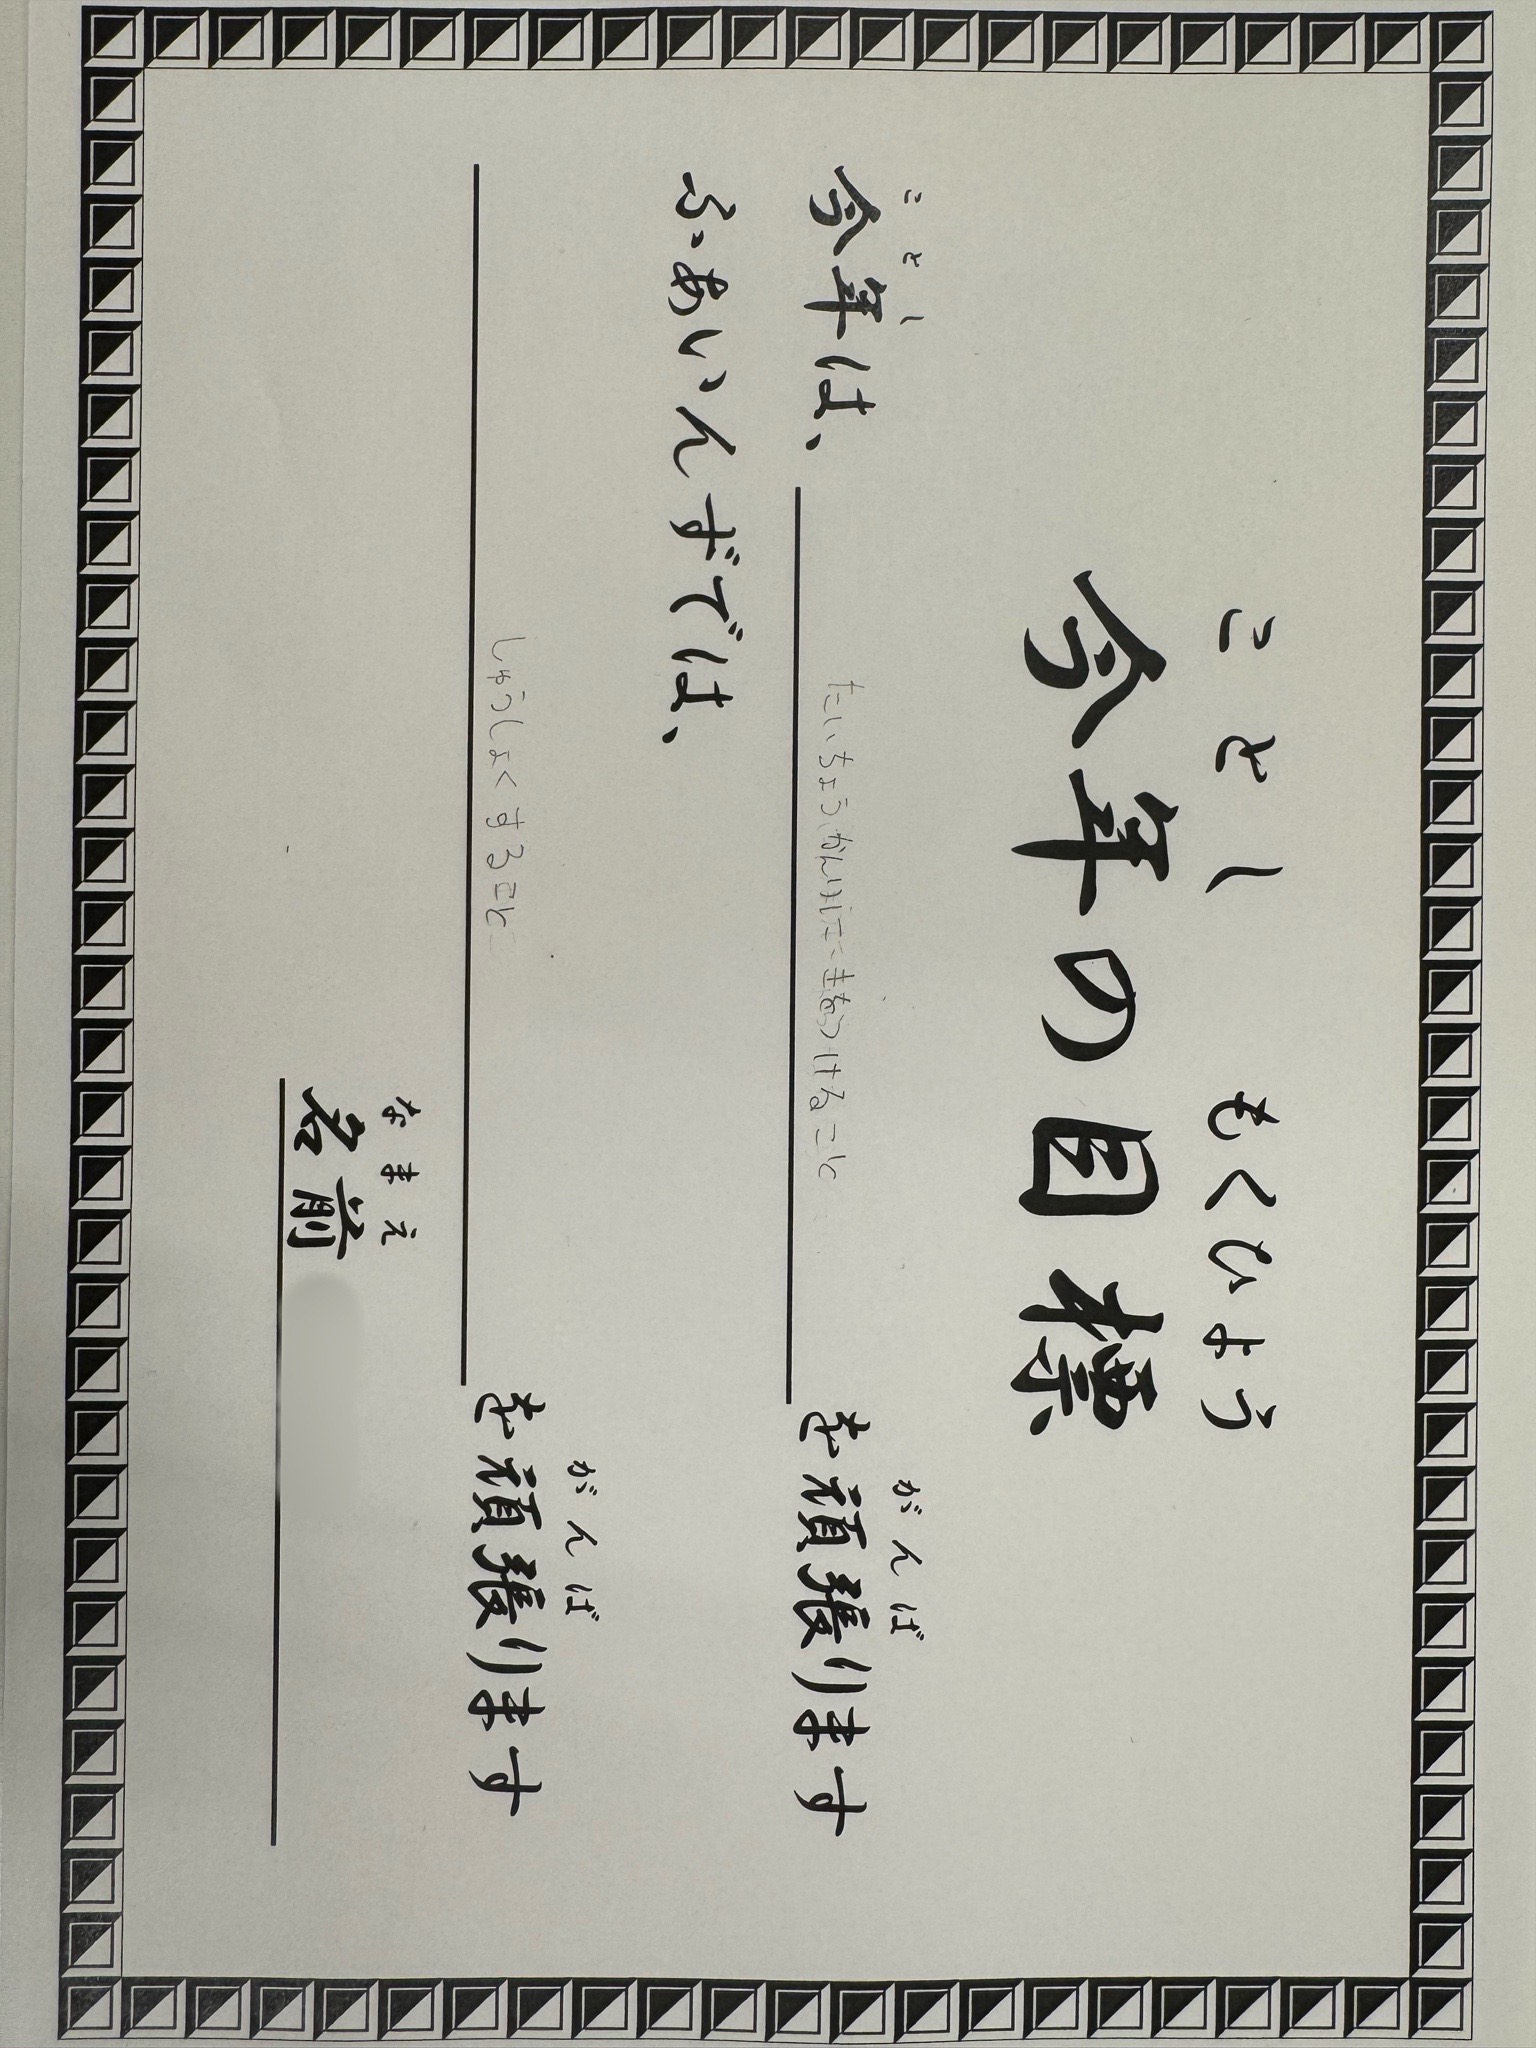 ことし もくひょう
今年の目標
ことし
今年は、たいちょうかんりに気をつけること
がんば
を頑張ります
ふぁいんずでは、
しゅうしょくすること
がんば
を頑張ります
なまえ
名前